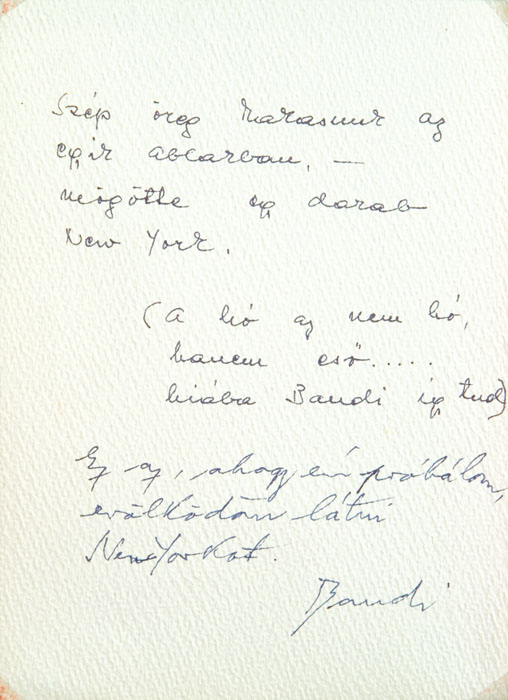 Szép öreg kakasunk az
egyik ablakban, —
mögötte egy darab
New York.
(A hó az nem hó,
hanem eső.....
hiába Bandi így tud)
Ez az, ahogy én próbálom,
erőlködöm látni
NewYorkot.
Bandi